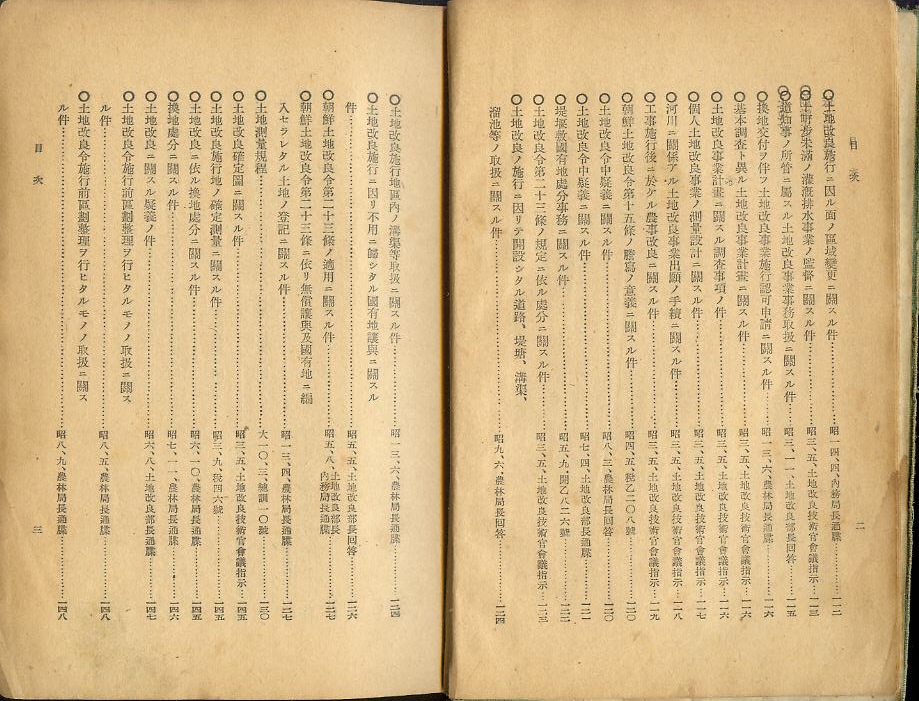 目次
二
土地改良施行ニ因ル面ノ區域變更ニ關スル件……昭一四、四、內務局長通牒……一一二
十町步未滿ノ灌漑排水事業ノ監督ニ關スル件……昭三、五、土地改良技術官會議指示……一一三
道知事ノ所管ニ屬スル土地改良事業事務取扱ニ關スル件……昭三、一一、土地改良部長回答……一一五
換地交付ヲ伴フ土地改良事業施行認可申請ニ關スル件……昭一三、六、農林局長通牒……一一六
基本調查ト異ル土地改良事業計畫ニ關スル件……昭三、五、土地改良技術官會議指示……一一六
土地改良事業計畫ニ關スル調查事項ノ件……昭三、五、土地改良技術官會議指示……一一六
個人土地改良事業ノ測量設計ニ關スル件……昭三、五、土地改良技術官會議指示……一一七
河川ニ關係アル土地改良事業出願ノ手續ニ關スル件……昭三、五、土地改良技術官會議指示……一一八
工事施行後ニ於ケル農事改良ニ關スル件……昭三、五、土地改良技術官會議指示……一一九
朝鮮土地改良令第十五條ノ謄寫ノ意義ニ關スル件……昭四、五、稅乙二〇八號……一二〇
土地改良令中疑義ニ關スル件……昭八、三、農林局長回答……一二〇
土地改良令中疑義ニ關スル件……昭七、四、土地改良部長通牒……一二一
堤堰敷國有地處分事務ニ關スル件……昭五、九、開乙八二六號……一二二
土地改良令第二十三條ノ規定ニ依ル處分ニ關スル件……昭三、五、土地改良技術官會議指示……一二三
土地改良ノ施行ニ因リテ開設シタル道路、堤塘、溝渠、
溜池等ノ取扱ニ關スル件……昭九、六、農林局長回答……一二四
土地改良施行地區內ノ溝渠等取扱ニ關スル件……昭一三、六、農林局長通牒……一二四
土地改良施行ニ因リ不用ニ歸シタル國有地讓與ニ關スル
件……昭五、五、土地改良部長回答……一二六
朝鮮土地改良令第二十三條ノ適用ニ關スル件……昭五、八、土地改良部長 內務局長通牒
朝鮮土地改良令第二十三條ニ依リ無償讓與及國有地ニ編
入セラレタル土地ノ登記ニ關スル件……昭一三、四、農林局長通牒……一二七
土地測量規程……大一〇、三、總訓一〇號……一三〇
土地改良確定圖ニ關スル件……昭三、五、土地改良技術官會議指示……一四五
土地改良施行地ノ確定測量ニ關スル件……昭三、九、稅四六號……一四五
土地改良ニ依ル換地處分ニ關スル件……昭六、一〇、農林局長通牒……一四五
換地處分ニ關スル件……昭七、一一、農林局長通牒……一四六
土地改良ニ關スル疑義ノ件……昭六、八、土地改良部長通牒……一四七
土地改良令施行前區劃整理ヲ行ヒタルモノノ取扱ニ關ス
ル件……昭八、五、農林局長通牒……一四八
土地改良令施行前區劃整理ヲ行ヒタルモノノ取扱ニ關ス
ル件……昭八、九、農林局長通牒……一四八
目次
三